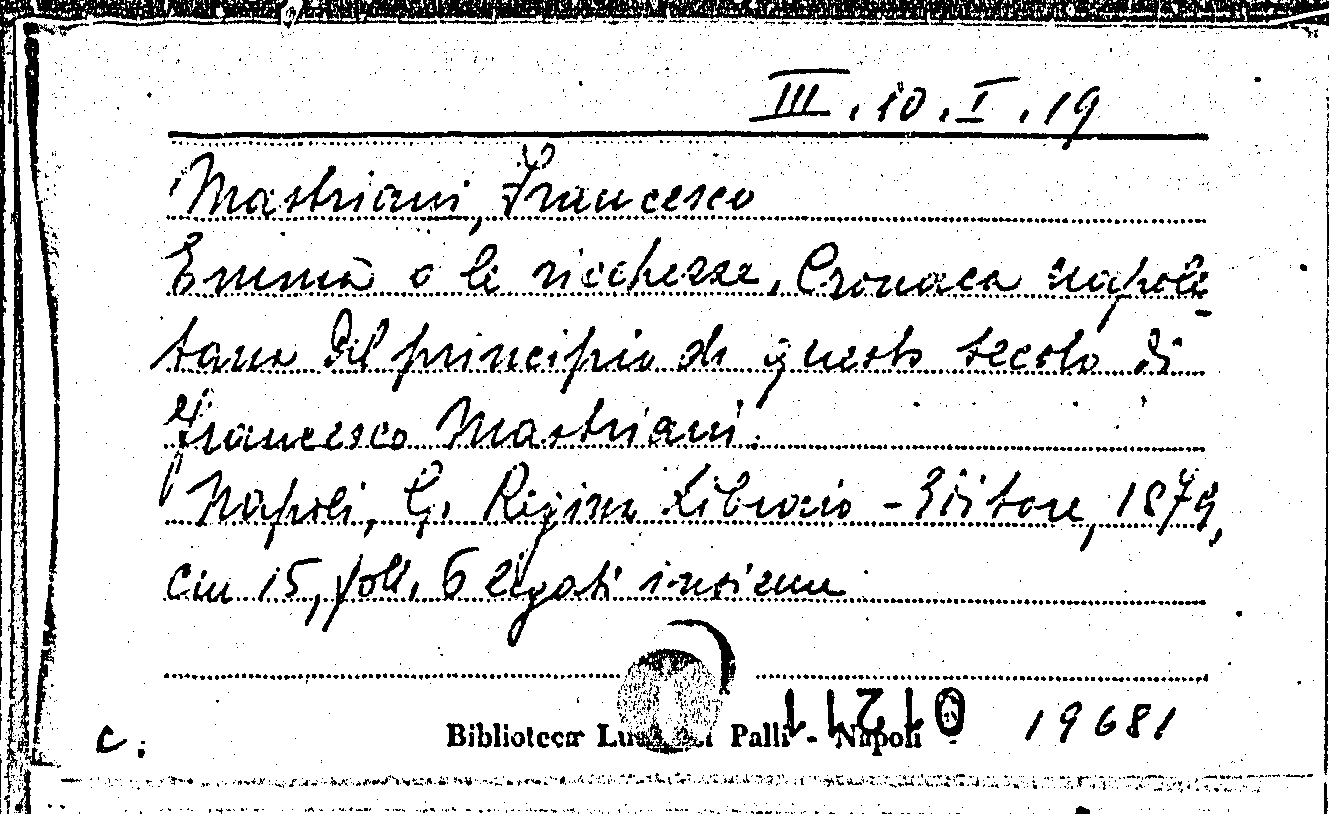 III.10.I.19
Mastriani, Francesco
Emma o le ricchezze. Cronaca napole
tana del principio di questo secolo di
Francesco Mastriani.
Napoli, G. Regina Libraio - Editore, 1879,
cm 15, foll. 6 legati insieme
Biblioteca Palli - Napoli
19681
c.